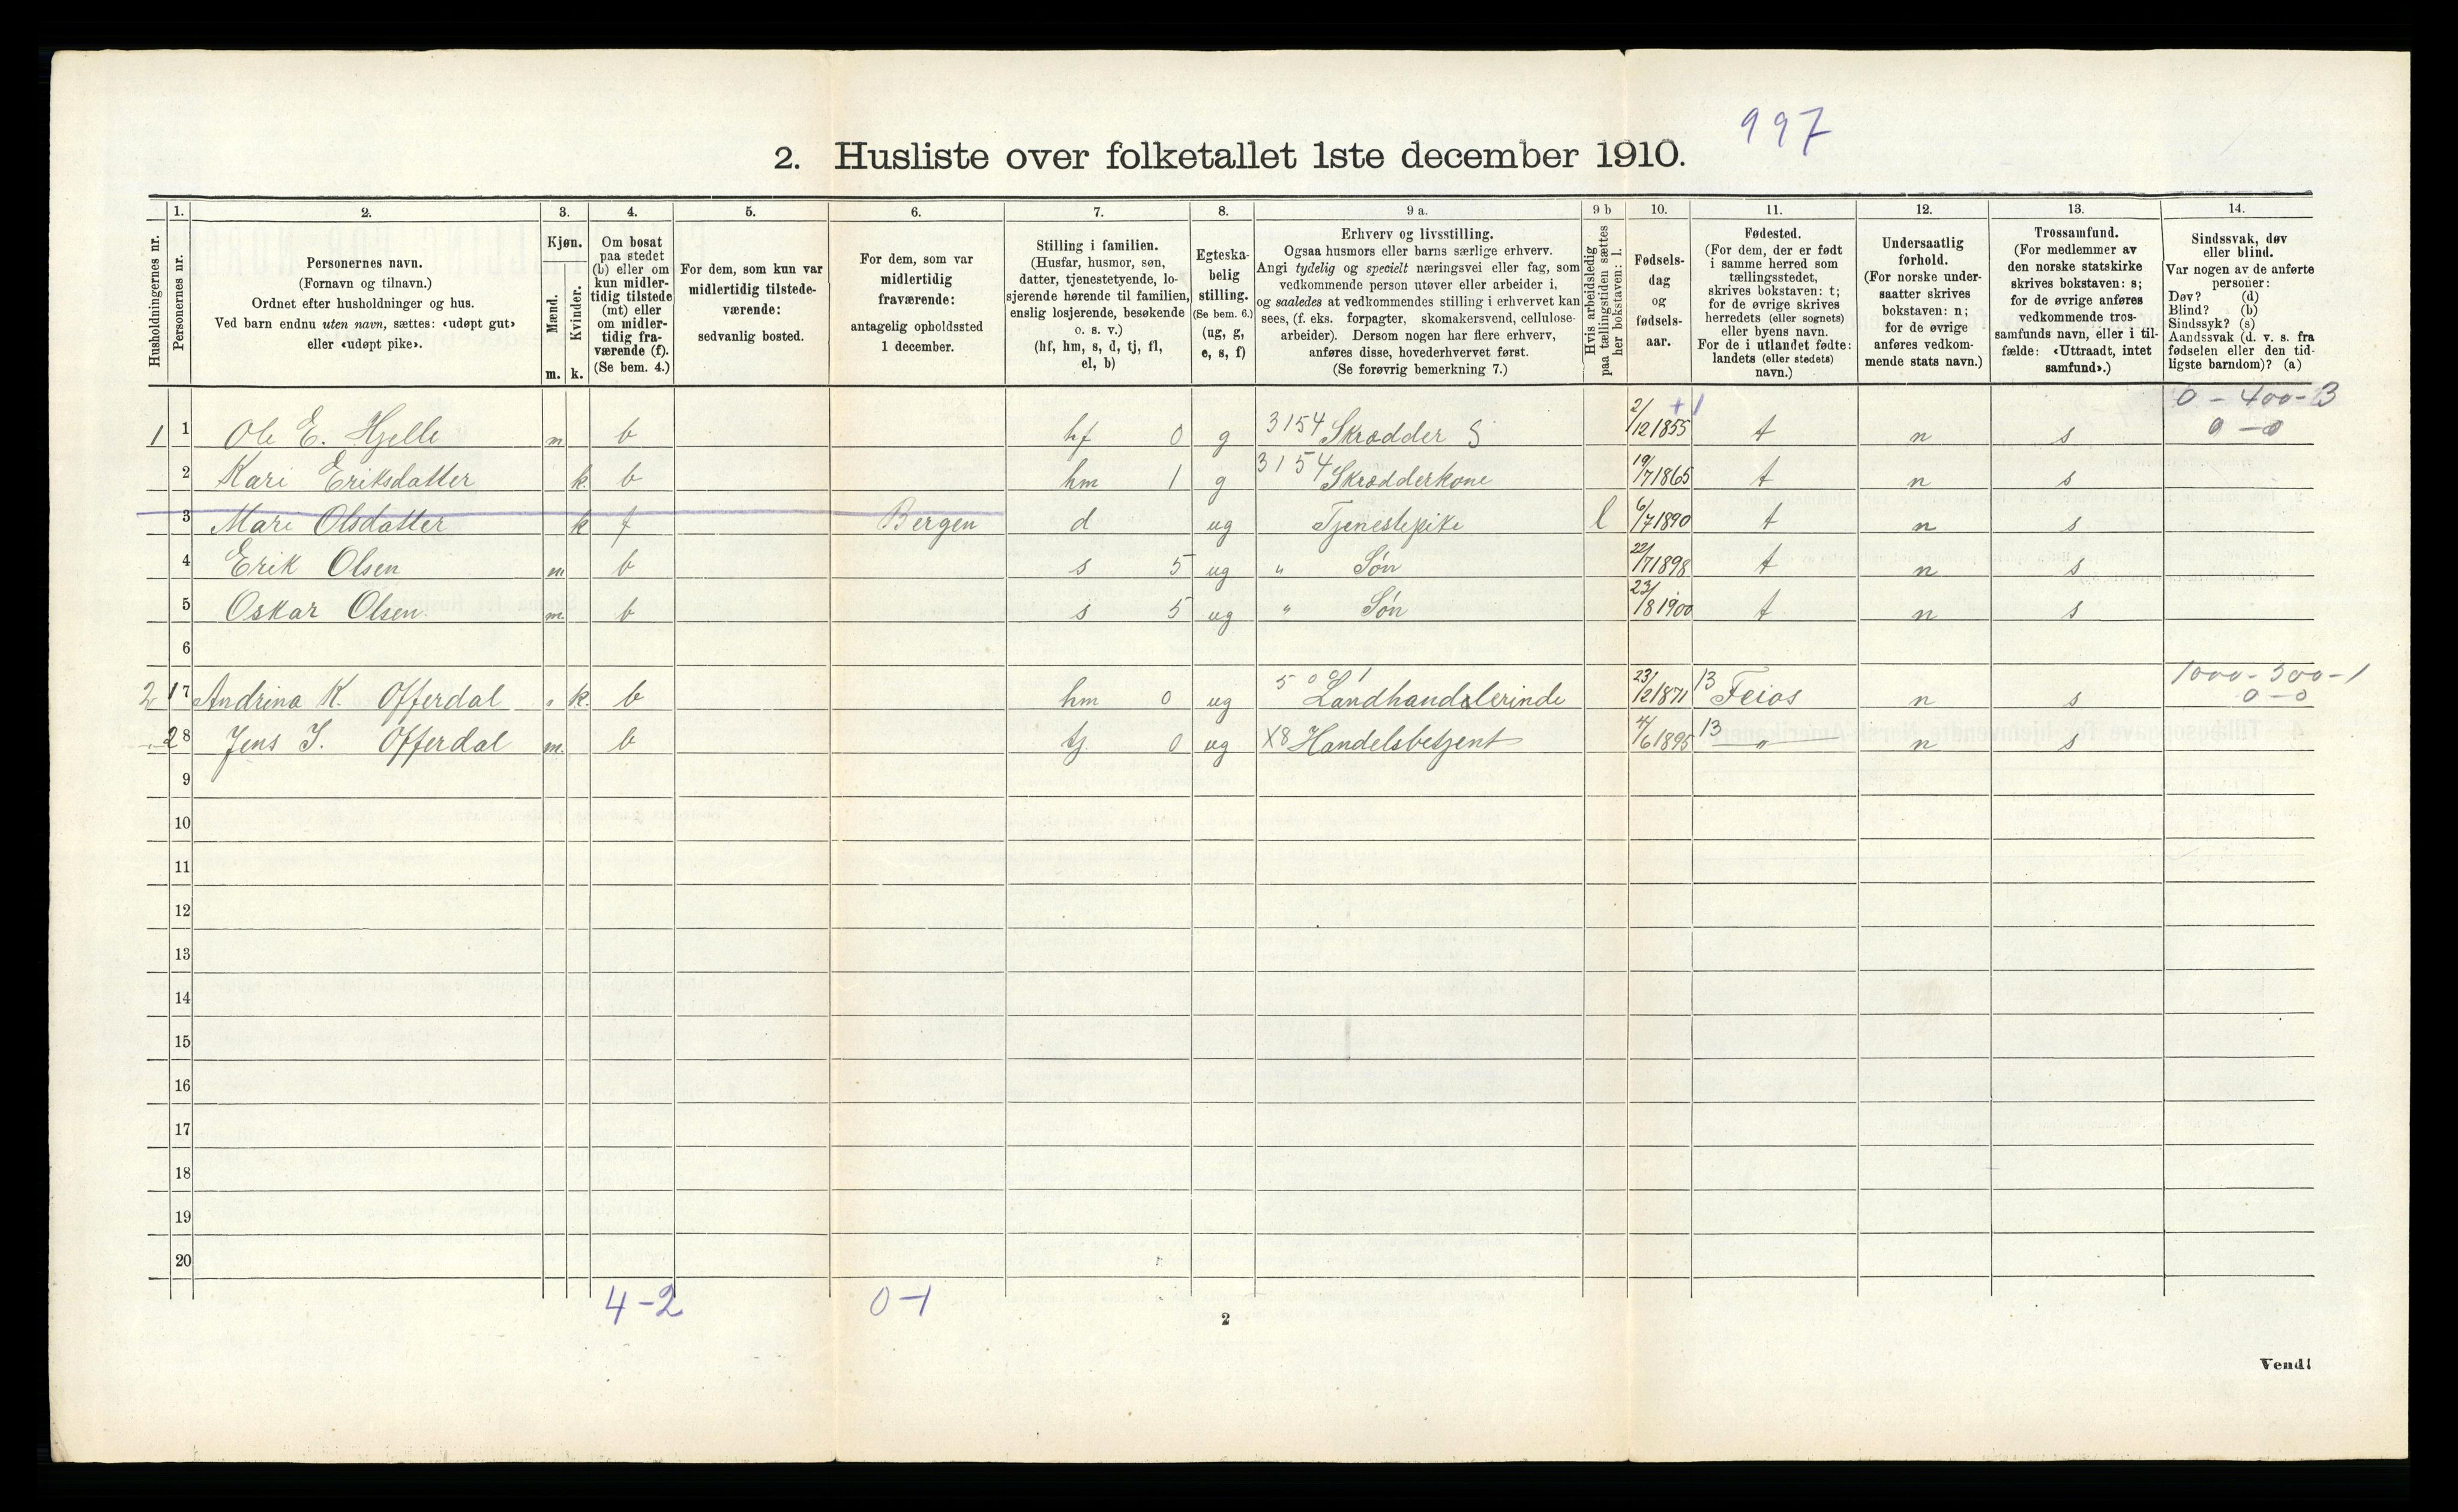 997
2. Husliste over folketallet 1ste december 1910.
Husholdningernes nr.
1. Personernes nr.
2. Personernes navn.
(Fornavn og tilnavn.)
Ordnet efter husholdninger og hus.
Ved barn endnu uten navn, sættes: «udøpt gut»
eller «udøpt pike».
3. Kjøn.
Mænd. m.
Kvinder. k.
4. Om bosat
paa stedet
(b) eller om
kun midler-
tidig tilstede
(mt) eller
om midler-
tidig fra-
værende (f).
(Se bem. 4.)
5. For dem, som kun var
midlertidig tilstede-
værende:
sedvanlig bosted.
6. For dem, som var
midlertidig
fraværende:
antagelig opholdssted
1 december.
7. Stilling i familien.
(Husfar, husmor, søn,
datter, tjenestetyende, lo-
sjerende hørende til familien,
enslig losjerende, besøkende
o. s. v.)
(hf, hm, s, d, tj, fl,
el, b)
8. Egteska-
belig
stilling.
(Se bem. 6.)
(ug, g,
e, s, f)
9 a. Erhverv og livsstilling.
Ogsaa husmors eller barns særlige erhverv.
Angi tydelig og specielt næringsvei eller fag, som
vedkommende person utøver eller arbeider i,
og saaledes at vedkommendes stilling i erhvervet kan
sees, (f. eks. forpagter, skomakersvend, cellulose-
arbeider). Dersom nogen har flere erhverv,
anføres disse, hovederhvervet først.
(Se forøvrig bemerkning 7.)
9 b Hvis arbeidsledig
paa tællingstiden sættes
her bokstaven: l.
10. Fødsels-
dag
og
fødsels-
aar.
11. Fødested.
(For dem, der er født
i samme herred som
tællingsstedet,
skrives bokstaven: t;
for de øvrige skrives
herredets (eller sognets)
eller byens navn.
For de i utlandet fødte:
landets (eller stedets)
navn.)
12. Undersaatlig
forhold.
(For norske under-
saatter skrives
bokstaven: n;
for de øvrige
anføres vedkom-
mende stats navn.)
13. Trossamfund.
(For medlemmer av
den norske statskirke
skrives bokstaven: s;
for de øvrige anføres
vedkommende tros-
samfunds navn, eller i til-
fælde: «Uttraadt, intet
samfund».)
14. Sindssvak, døv
eller blind.
Var nogen av de anførte
personer:
Døv? (d)
Blind? (b)
Sindssyk? (s)
Aandssvak (d. v. s. fra
fødselen eller den tid-
ligste barndom)? (a)
0 - 400 - 3
1 1 Ole E. Hjelle m b hf 0 g 3154 Skrædder S 2/12 1855 t n s 0 - 0
2 Kari Eriksdatter k. b hm 1 g 3154 Skrædderkone 19/7 1865 t n s
3 Mari Olsdatter k f Bergen d ug Tjenestepike l 6/7 1890 t n s
4 Erik Olsen m b s 5 ug " Søn 22/7 1898 t n s
5 Oskar Olsen. m. b s 5 ug " Søn 23/8 1900 t n s
6
1000 - 500 - 1
2 1 7 Andrina K. Offerdal k. b hm 0 ug Landhandlerinde 23/12 1871 13 Feios n s 0 - 0
2 8 Jens S. Offerdal m. b tj. 0 ug X8 Handelsbetjent 4/6 1895 13 " n s
9
10
11
12
13
14
15
16
17
18
19
20
4 - 2 0 - 1
2
Vend!